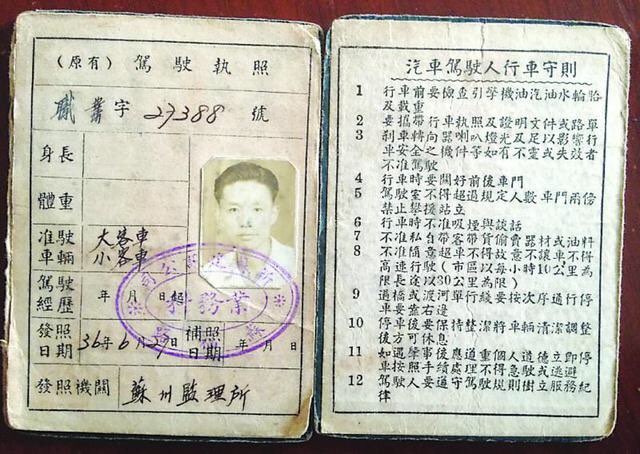 (原有)駕駛執照
職業字27388號
身長
體重
准駛車輛 大客車 小客車
駕駛經歷 年 月 日起
發照日期 36年6月27日 補照日期 年 月 日
發照機關 蘇州監理所
業務
汽車駕駛人行車守則
1 行車前要檢查引擎機油汽油水輪胎
及載重
2 要攜帶行車執照及證明文件或路單
3 刹車轉向喇叭燈光足以影響行
車安全之機件等如有不靈或失效者
不准駕駛
4 行車時要關好前後車門
5 駕駛室不得超過規定人數車門兩傍
禁止攀援站立
6 行車時不准吸煙與談話
7 不准私自帶客帶貨偷賣器材或油料
8 不准隨意超車不得故意不讓車不得
高速行駛(市區以每小時10公里為
限長途以30公里為限)
9 過橋或渡河單行綫要按次序通行停
車要靠右邊
10 停車後要保持整潔將車輛清潔調整
後方可休息
11 如遇肇事後應道重個人道德立即停
車按照手續處理不得急駛或逃避
12 駕駛人要遵守駕駛規則樹立服務紀
律